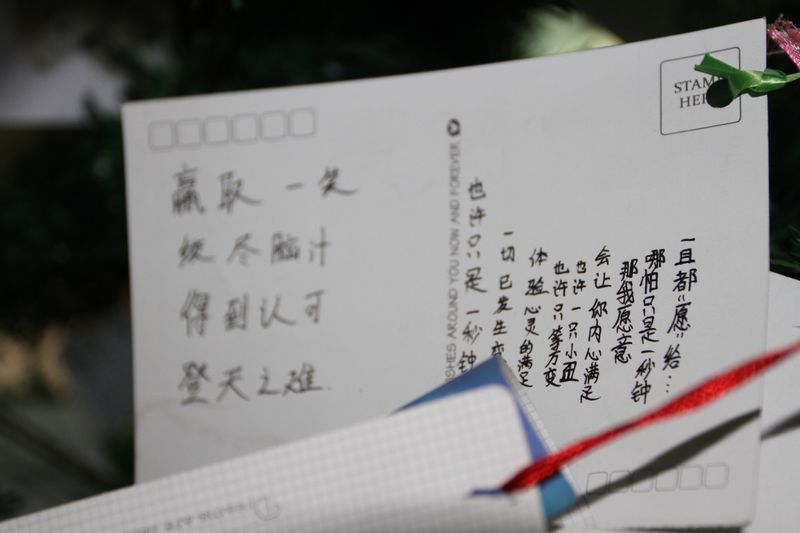 赢取 一笑
绞尽脑汁
得到认可
登天之难
SHES AROUND YOU NOW AND FOREVER
STAM
HER
一且都“愿”给...
哪怕只是一秒钟
那我愿意
会让 你内心满足
也许 一只小丑
也许只等万变
体验心灵的满足
一切已发生变
也许只是一秒钟
Dreams are